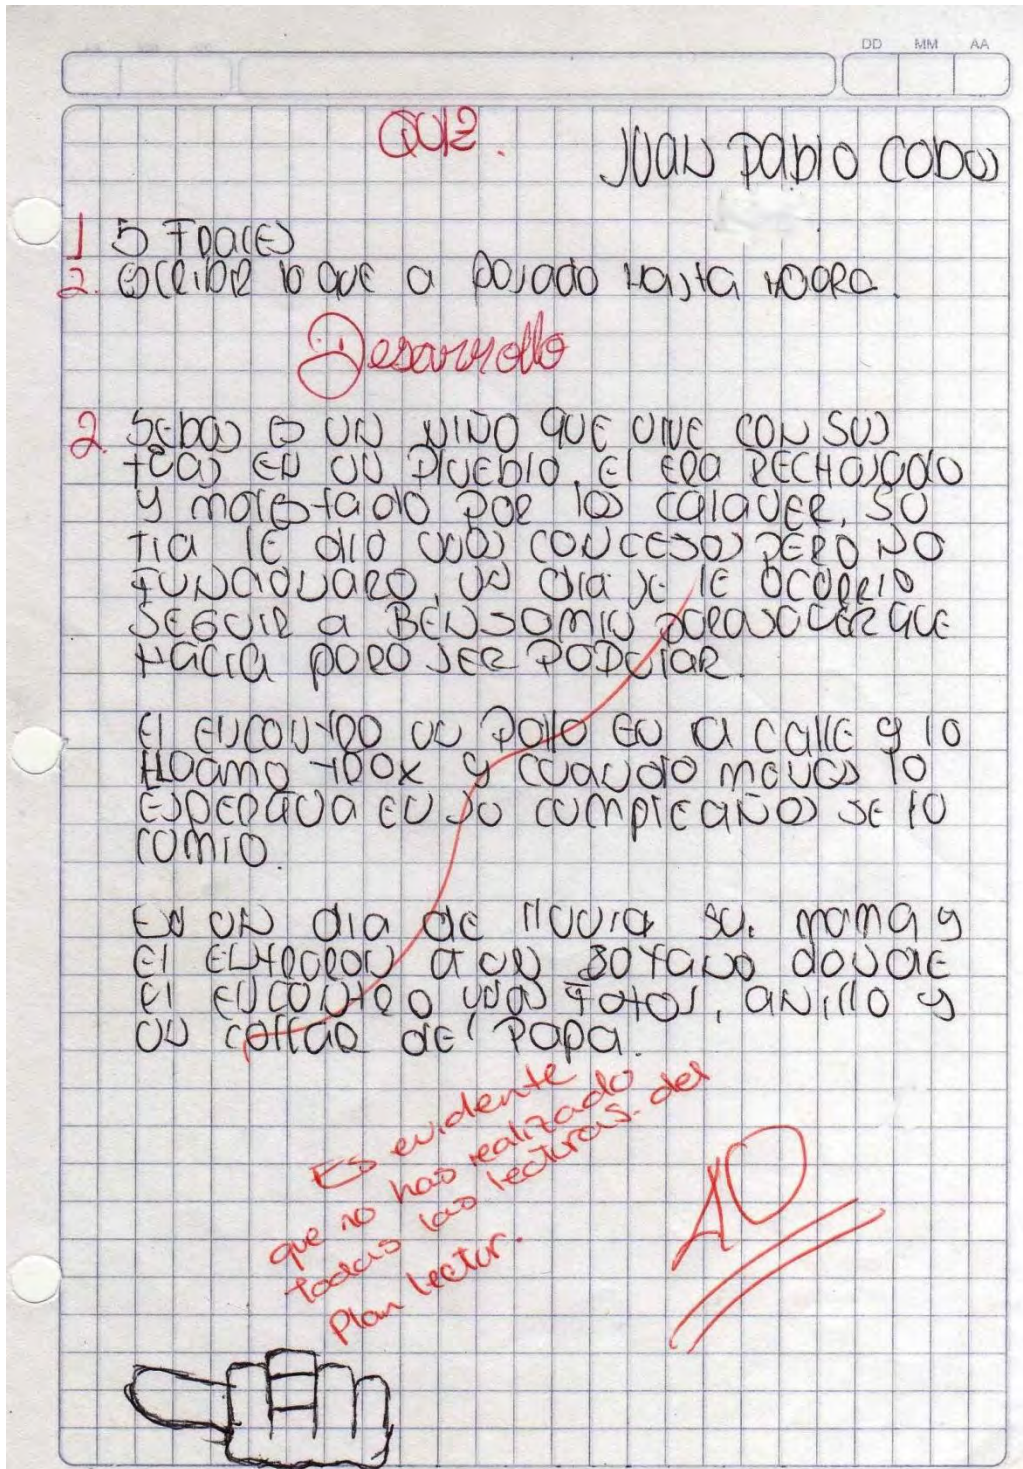 DD MM AA
QUIZ.
JUAN PABLO COBOS
1 5 FRACES
2. ESCRIBIR lo QUE a PASADO HASTA HAORA.
Desarrollo
2 SEBAS ES UN NIÑO QUE VIVE CON SUS
TIAS EN UN PUEBLO, El ERA RECHASADO
y molestado POR los CALAVER, SU
TIA lE dIO UNOS CONCESOS PERO NO
FUNCIONARO, UN dia SE lE OCURRIO
SEGUIR a BENJOMIN PARA VER QUE
HACIA PARA SER POPULAR.
El ENCONTRO UN POllO EN la CallE y lo
HLAMO TROX y CUANDO MENOS lo
ESPERAVA EN SU CUMPLEAÑOS SE lO
COMIO.
EN UN dia dE lluvia SU mama y
El ENTRARON A UN SOTANO dONdE
El ENCONTRO UNAS FOTOS, ANILLO y
UN COllAR dEl PAPA.
Es evidente
que no has realizado
todas las lecturas del
Plan lector.
10